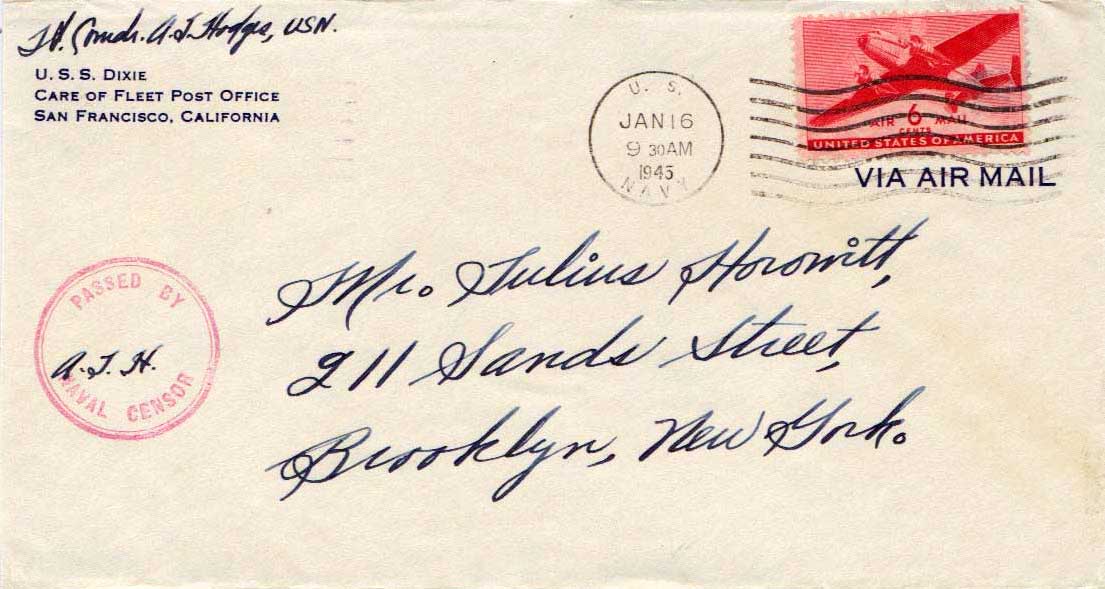 Lt. Comdr. A. J. Hodges, USN.
U. S. S. DIXIE
CARE OF FLEET POST OFFICE
SAN FRANCISCO, CALIFORNIA
U. S.
JAN 16
9 30 AM
1945
NAVY
AIR 6 MAIL
CENTS
UNITED STATES OF AMERICA
VIA AIR MAIL
PASSED BY
A. J. H.
NAVAL CENSOR
Mr. Julius Horowitt,
211 Sands Street,
Brooklyn, New York.